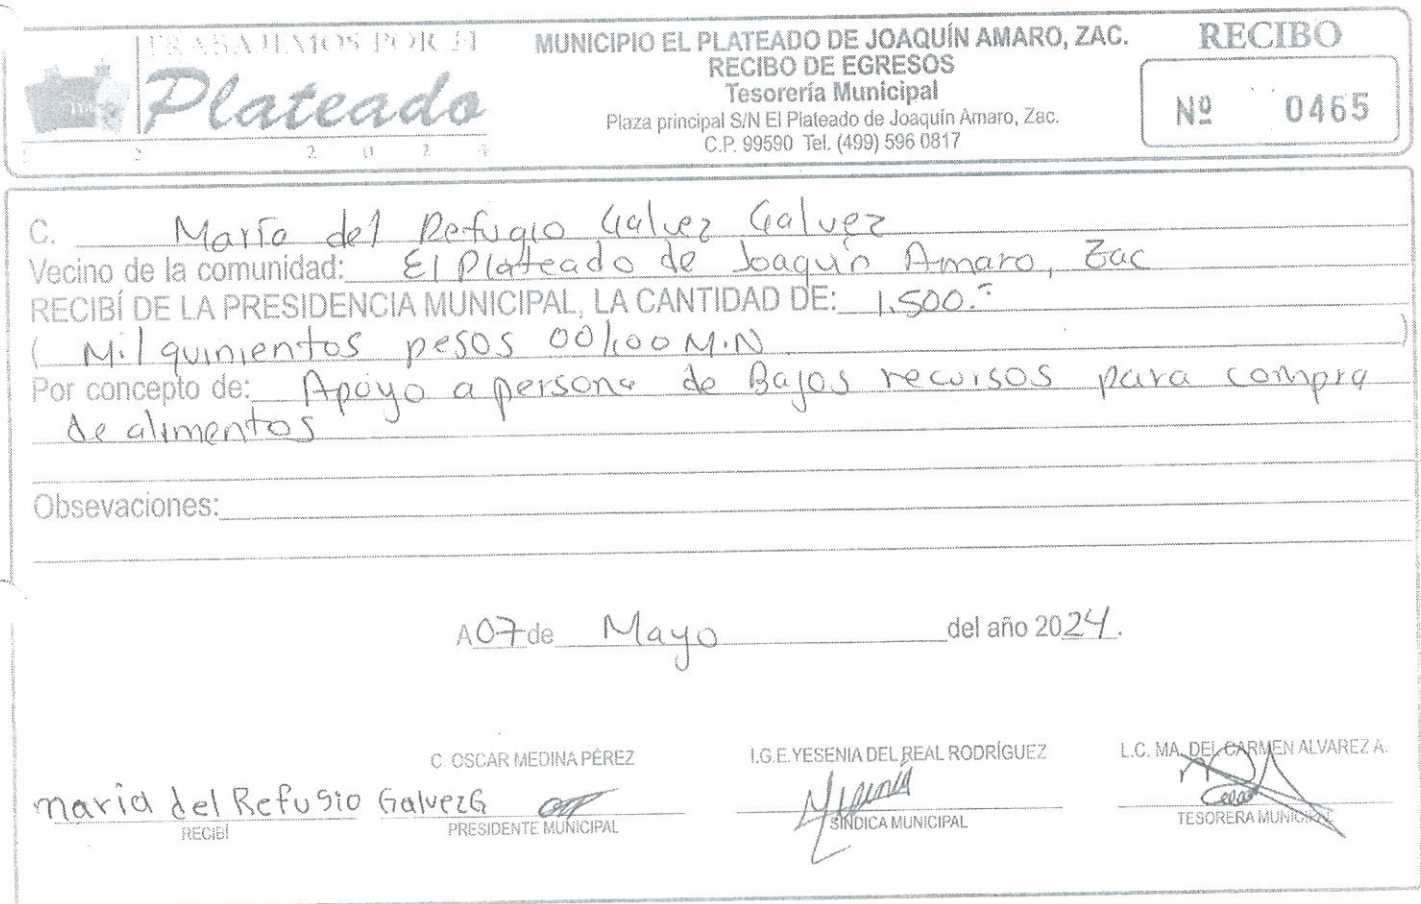 TRABAJEMOS POR El
Plateado
2 0 2 4
MUNICIPIO EL PLATEADO DE JOAQUÍN AMARO, ZAC.
RECIBO DE EGRESOS
Tesorería Municipal
Plaza principal S/N El Plateado de Joaquín Amaro, Zac.
C.P. 99590 Tel. (499) 596 0817
RECIBO
Nº 0465
C. María del Refugio Galvez Galvez
Vecino de la comunidad: El Plateado de Joaquín Amaro, Zac
RECIBÍ DE LA PRESIDENCIA MUNICIPAL, LA CANTIDAD DE: 1,500.-
( Mil quinientos pesos 00/100 M.N )
Por concepto de: Apoyo a persona de Bajos recursos para compra
de alimentos
Obsevaciones:
A 07 de Mayo del año 2024.
C. OSCAR MEDINA PÉREZ
I.G.E. YESENIA DEL REAL RODRÍGUEZ
L.C. MA. DEL CARMEN ALVAREZ A.
maria del Refugio Galvez G
RECIBÍ
PRESIDENTE MUNICIPAL
SÍNDICA MUNICIPAL
TESORERA MUNICIPAL